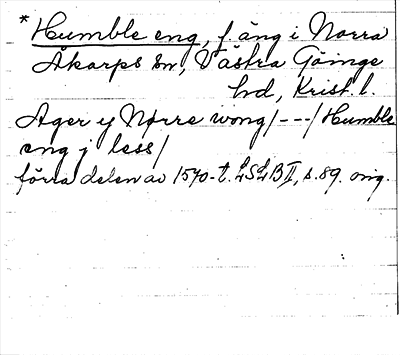 * Humble eng, f. äng i Norra
Åkarps sn, Västra Göinge
hd, Krist. l.
Ager ij Nørre wong/---/Humble
eng j less/
förra delen av 1570-t. LSLB II, s. 89. orig.